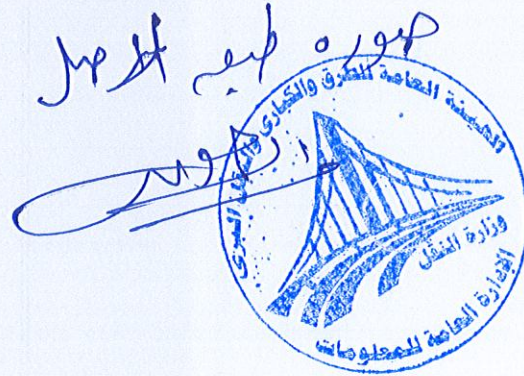 صورة طبق الأصل
الهيئة العامة للطرق والكبارى والنقل البرى
وزارة النقل
الإدارة العامة للمعلومات